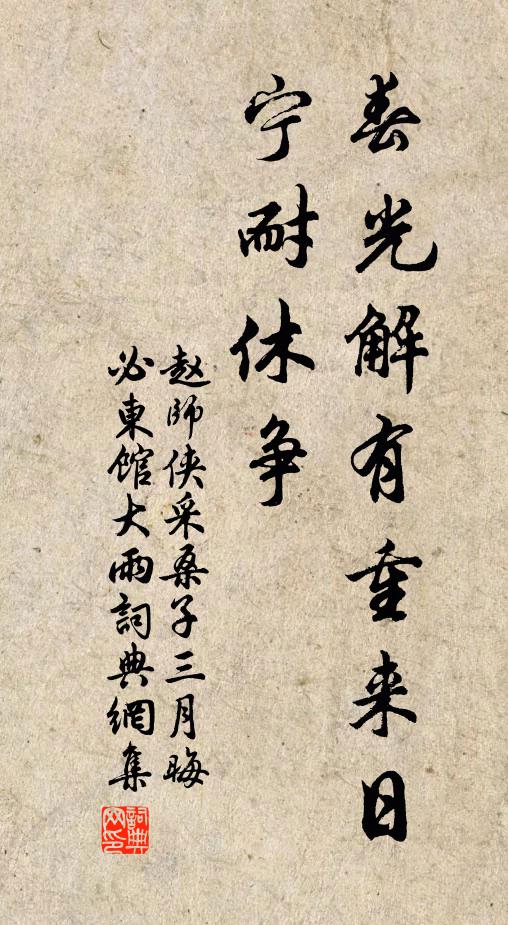 春光解有重来日
宁耐休争
赵師侠采桑子三月晦
必東館大雨詞典網集
詞典网印